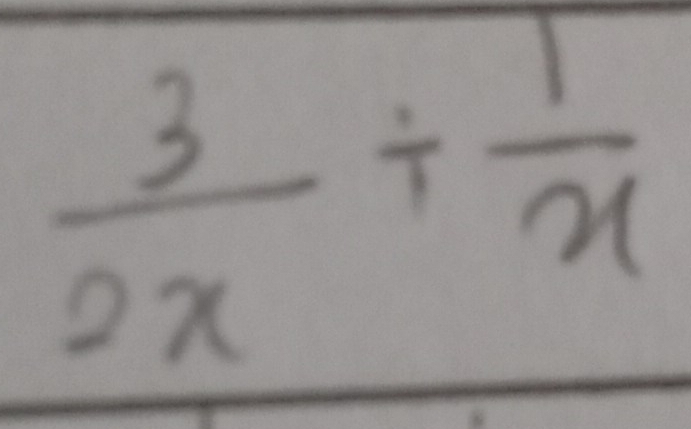 3/2x ÷ 1/x